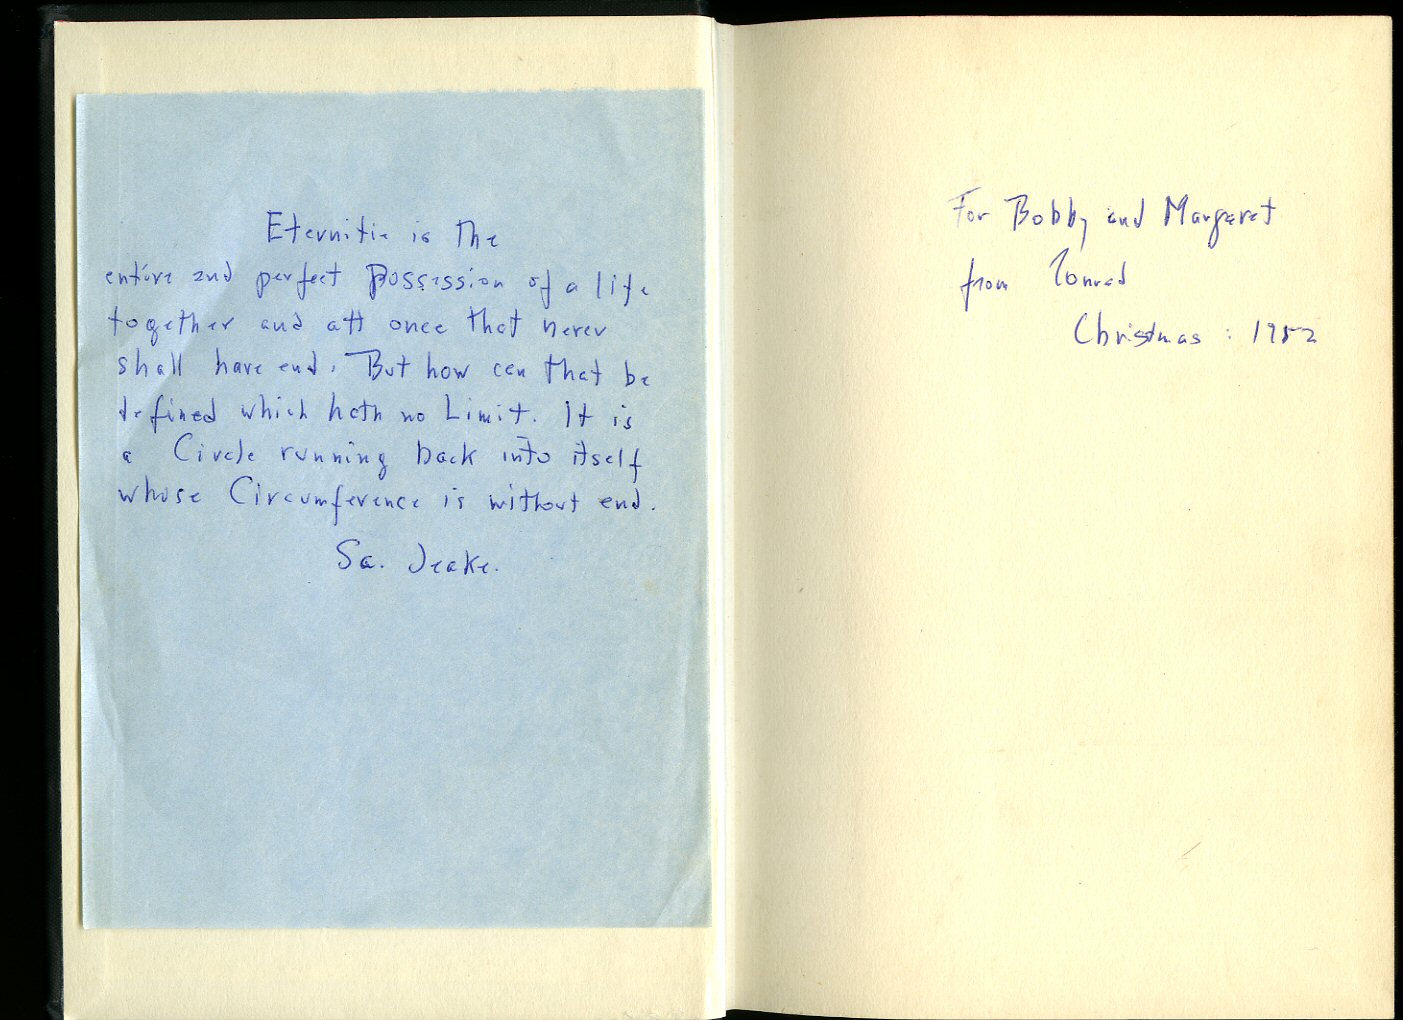 Eternitie is the
entire and perfect Possession of a life
together and att once that never
shall have end. But how can that be
defined which hath no Limit. It is
a Circle running back into itself
whose Circumference is without end.
Sa. Jeake.
For Bobby and Margaret
from Conrad
Christmas : 1952